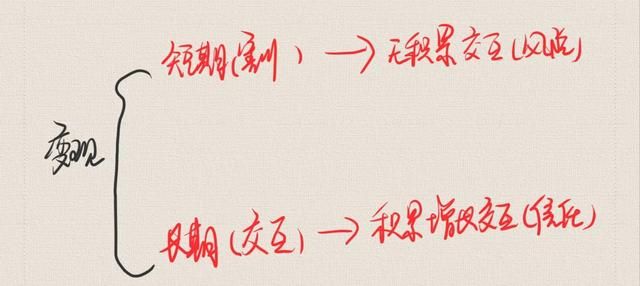 短期(割) → 无积累交互(风险)
变现
长期(交互) → 积累增收交互(信任)